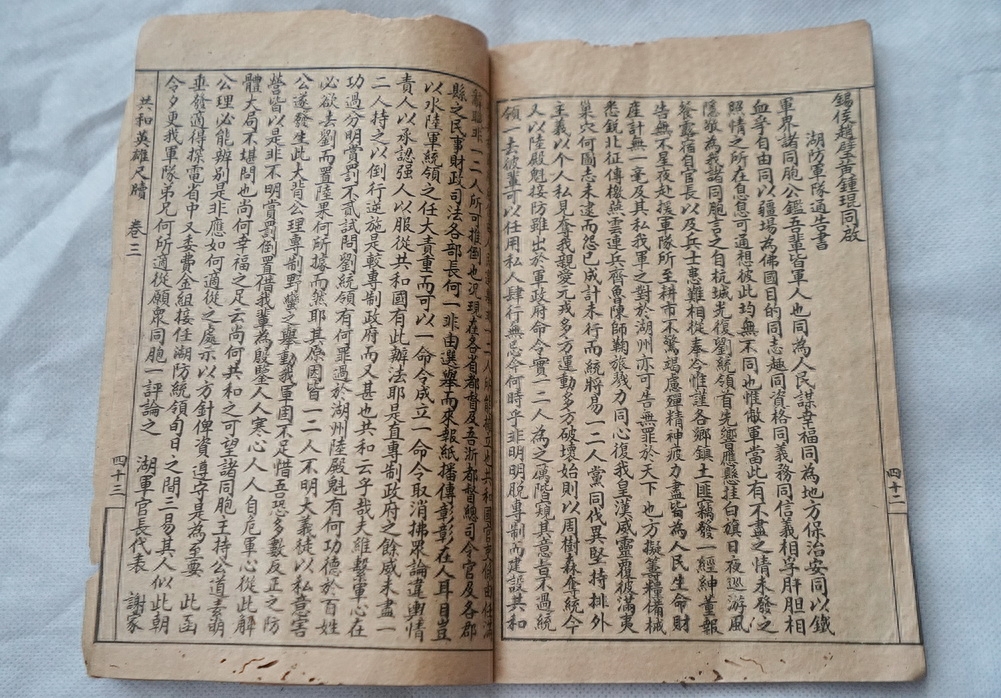 錫侯趙璧黃鍾琨同啟
湖防軍隊通告書
軍界諸同胞公鑑吾輩皆軍人也同為人民謀幸福同為地方保治安同以鐵
血爭自由同以疆場為佛國目的同志趣同資格同義務同信義相孚肝胆相
照情之所在息息可通想彼此均無不同也惟敝軍當此有不盡之情未發之
隱敬為我諸同胞言之自杭城光復劉統領首先響應懸挂白旗日夜巡游風
餐露宿自官長以及兵士患難相從奉令惟謹各鄉鎮土匪竊發一經紳董報
告無不星夜赴援軍隊所至耕市不驚竭慮殫精神疲力盡皆為人民生命財
產計無一毫及其私我軍之對於湖州亦可告無罪於天下也方擬籌糧備械
悉銳北征傳檄燕雲連兵齊魯陳師鞠旅戮力同心復我皇漢威靈覆彼滿夷
巢穴何圖志未逮而怨已成計未行而統將易一二人黨同伐異堅持排外
主義以个人私見奪我親愛元戎多方運動多方破壞始則以周樹森奪統令
又以陸殿魁接防雖出於軍政府命令實一二人為之厲階窺其意旨不過統
領一去彼輩可以任用私人肆行無忌今何時乎非明明脫專制而建設共和
四十二
縣之民事財政司法各部長何一非由選舉而來報紙播傳彰彰在人耳目豈
以水陸軍統領之任大責重而可以一命令成立一命令取消拂眾論違輿情
責人以承認强人以服從共和國有此辦法耶是直專制政府之餘威未盡一
二人持之以倒行逆施是較專制政府而又甚也共和云乎哉夫維繫軍心在
功過分明賞罰不貳試問劉統領有何罪過於湖州陸殿魁有何功德於百姓
必欲去劉而置陸果何所據而然耶其原因皆一二人不明大義徒以私意害
公遂發生此大背公理專制野蠻之舉動我軍固不足惜吾恐多數反正之防
營皆以是非不明賞罰倒置借我輩為殷鑒人人寒心人人自危軍心從此解
體大局不堪問也尚何幸福之足云尚何共和之可望諸同胞主持公道素明
公理必能辦別是非應如何適從之處示以方針俾資遵守是為至要 此函
垂發適得探電省中又委費金組接任湖防統領旬日之間三易其人似此朝
令夕更我軍隊弟兄何所適從願眾同胞一評論之 湖軍官長代表 謝家
共和英雄尺牘 卷三
四十三